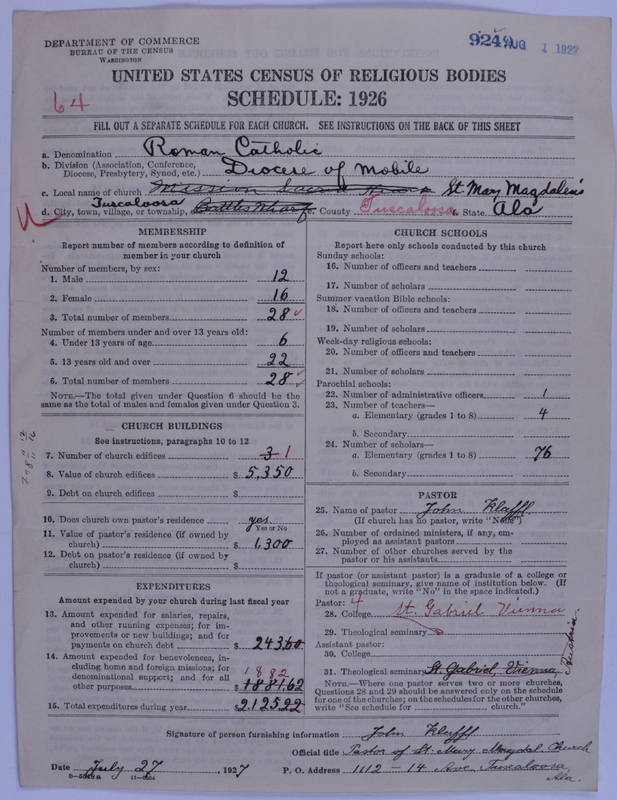 DEPARTMENT OF COMMERCE
BUREAU OF THE CENSUS
WASHINGTON
9240 AUG 1 1927
UNITED STATES CENSUS OF RELIGIOUS BODIES
SCHEDULE: 1926
64
FILL OUT A SEPARATE SCHEDULE FOR EACH CHURCH. SEE INSTRUCTIONS ON THE BACK OF THIS SHEET
a. Denomination Roman Catholic
b. Division (Association, Conference, Diocese, Presbytery, Synod, etc.) Diocese of Mobile
c. Local name of church Mission Sacred Heart St. Mary Magdalen's
d. City, town, village, or township, Tuscaloosa Battles Wharf e. County Tuscaloosa f. State Ala
MEMBERSHIP
Report number of members according to definition of
member in your church
Number of members, by sex:
1. Male 12
2. Female 16
3. Total number of members 28
Number of members under and over 13 years old:
4. Under 13 years of age 6
5. 13 years old and over 22
6. Total number of members 28
NOTE.—The total given under Question 6 should be the
same as the total of males and females given under Question 3.
CHURCH BUILDINGS
See instructions, paragraphs 10 to 12
7. Number of church edifices 3 1
8. Value of church edifices $ 5,350
9. Debt on church edifices $
10. Does church own pastor's residence yes
Yes or No
11. Value of pastor's residence (if owned by
church) $ 1,300
12. Debt on pastor's residence (if owned by
church) $
EXPENDITURES
Amount expended by your church during last fiscal year
13. Amount expended for salaries, repairs,
and other running expenses; for im-
provements or new buildings; and for
payments on church debt $ 243.60
14. Amount expended for benevolences, in-
cluding home and foreign missions; for
denominational support; and for all
other purposes $ 1881.62
1882
15. Total expenditures during year $ 2125.22
CHURCH SCHOOLS
Report here only schools conducted by this church
Sunday schools:
16. Number of officers and teachers
17. Number of scholars
Summer vacation Bible schools:
18. Number of officers and teachers
19. Number of scholars
Week-day religious schools:
20. Number of officers and teachers
21. Number of scholars
Parochial schools:
22. Number of administrative officers 1
23. Number of teachers—
a. Elementary (grades 1 to 8) 4
b. Secondary
24. Number of scholars—
a. Elementary (grades 1 to 8) 76
b. Secondary
PASTOR
25. Name of pastor John Klafft
(If church has no pastor, write "None")
26. Number of ordained ministers, if any, em-
ployed as assistant pastors
27. Number of other churches served by the
pastor or his assistants
If pastor (or assistant pastor) is a graduate of a college or
theological seminary, give name of institution below. (If
not a graduate, write "No" in the space indicated.)
Pastor: 4
28. College St. Gabriel Vienna
29. Theological seminary
Assistant pastor:
30. College
31. Theological seminary St. Gabriel, Vienna, Austria.
NOTE.—Where one pastor serves two or more churches,
Questions 28 and 29 should be answered only on the schedule
for one of the churches; on the schedules for the other churches,
write "See schedule for church."
Signature of person furnishing information John Klafft
Official title Pastor of St. Mary Magdal. Church
Date July 27, 1927 P. O. Address 1112 – 14 Ave, Tuscaloosa, Ala.